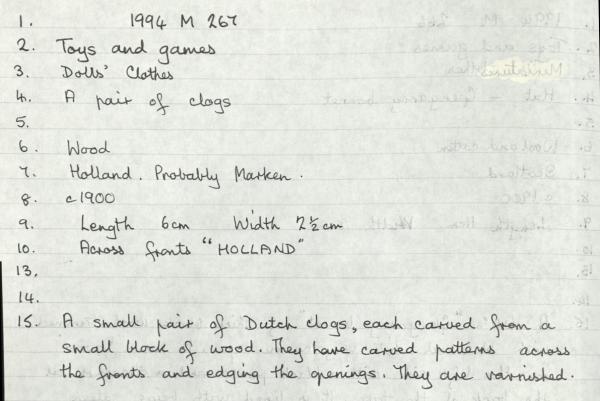 1. 1994 M 267
2. Toys and games
3. Dolls' Clothes
4. A pair of clogs
5.
6. Wood
7. Holland. Probably Marken.
8. c1900
9. Length 6cm Width 2½cm
10. Across fronts "HOLLAND"
13.
14.
15. A small pair of Dutch clogs, each carved from a
small block of wood. They have carved patterns across
the fronts and edging the openings. They are varnished.